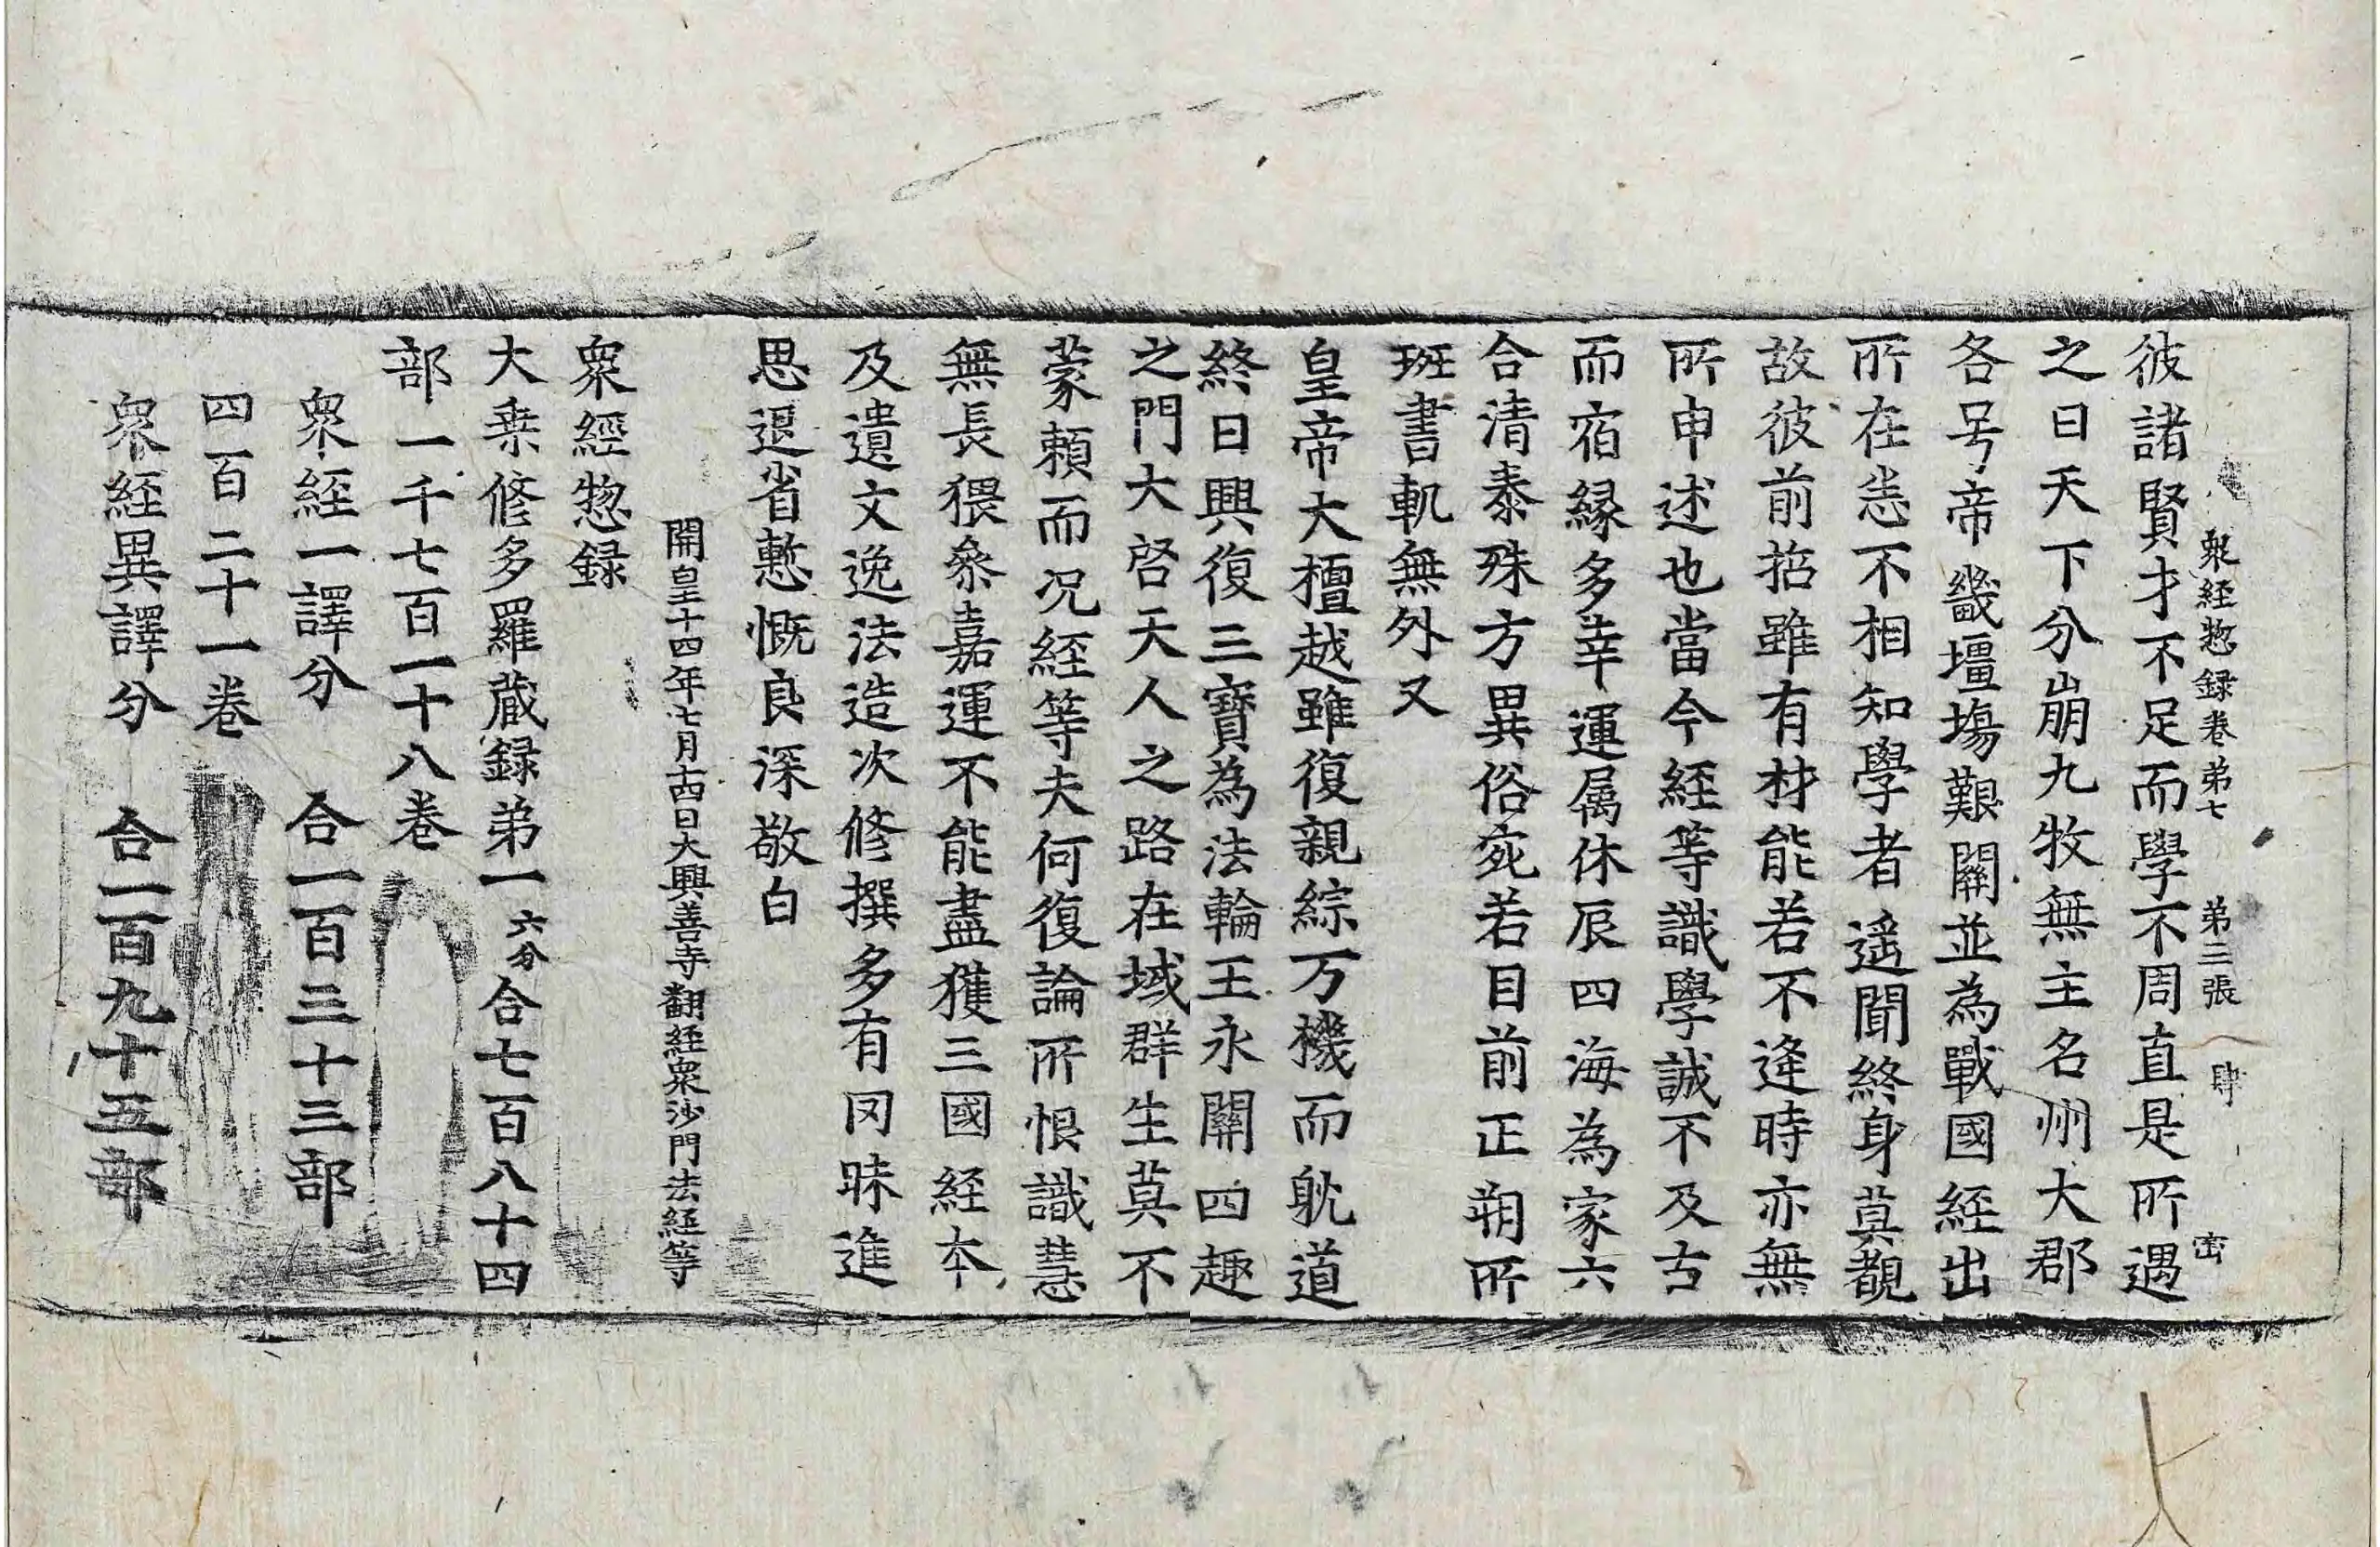 衆経惣録卷弟七 弟三張 肆 宻
彼諸賢才不足而學不周直是所遇
之日天下分崩九牧無主名州大郡
各号帝畿壃塲艱關並為戰國経出
所在恙不相知學者遥聞終身莫覩
故彼前哲雖有材能若不逢時亦無
所申述也當今経等識學誠不及古
而宿縁多幸運属休辰四海為家六
合清泰殊方異俗宛若目前正朔所
班書軌無外又
皇帝大檀越雖復親綜万機而躭道
終日興復三寶為法輪王永關四趣
之門大啓天人之路在域群生莫不
蒙頼而况経等夫何復論所恨識慧
無長猥叅嘉運不能盡獲三國経夲
及遺文逸法造次修撰多有罔昧進
思退省慙慨良深敬白
開皇十四年七月十四日大興善寺翻経衆沙門法経等
衆經惣録
大乗修多羅蔵録弟一六分合七百八十四
部一千七百一十八卷
衆経一譯分 合一百三十三部
四百二十一卷
衆経異譯分 合一百九十五部